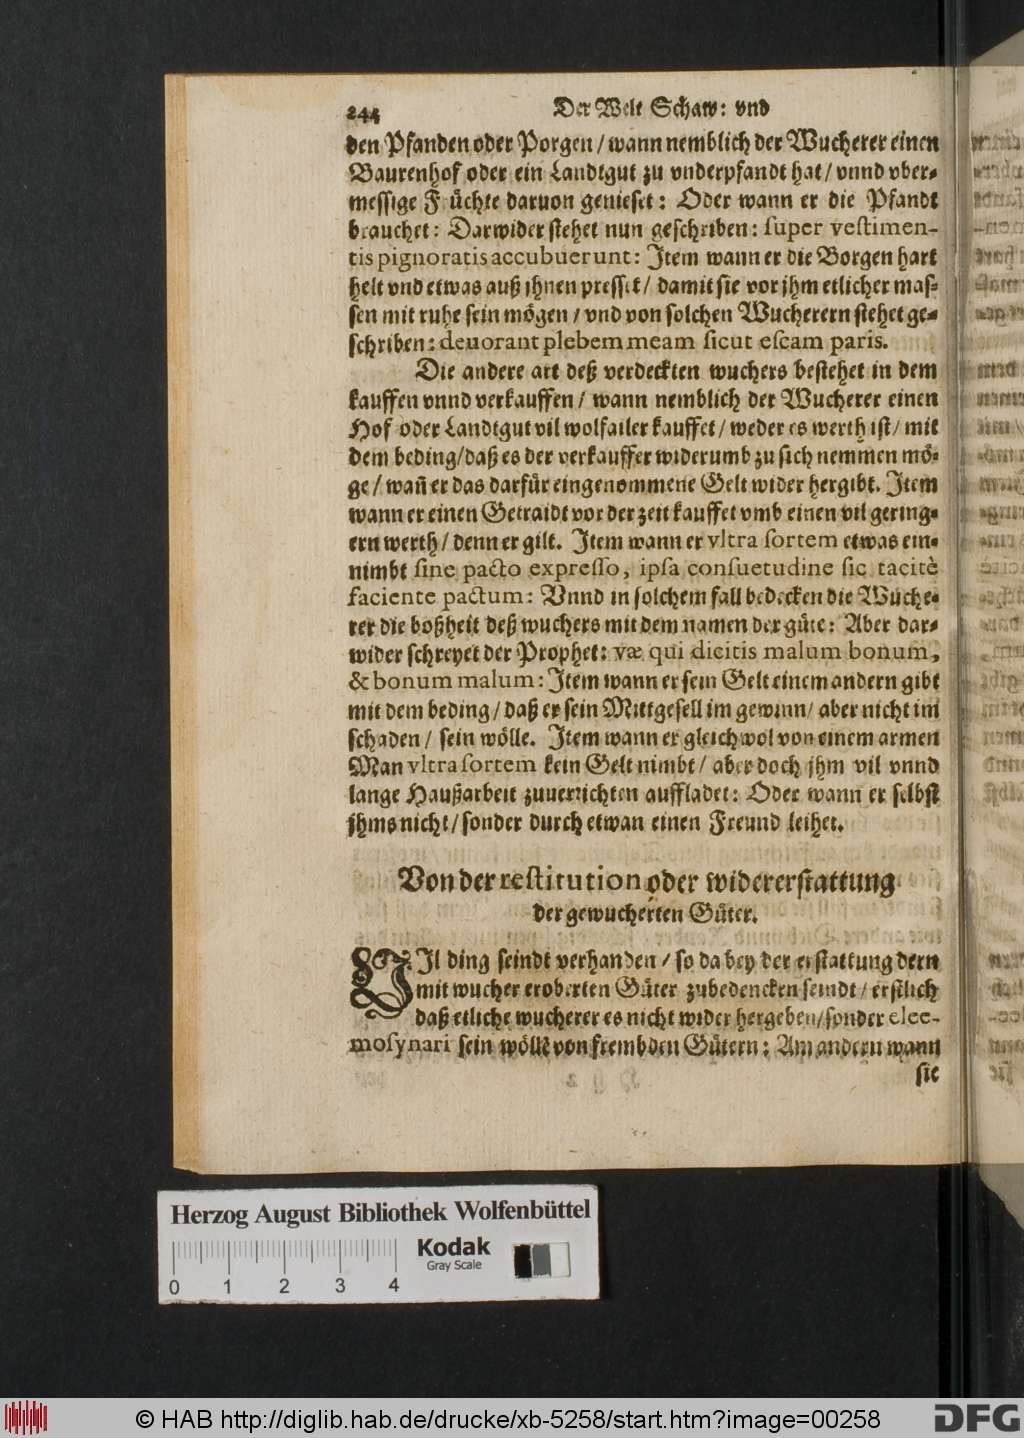 244 Der Welt Schaw: vnd
den Pfanden oder Porgen / wann nemblich der Wucherer einen
Baurenhof oder ein Landtgut zu vnderpfandt hat / vnnd vber-
messige Früchte daruon genieset: Oder wann er die Pfandt
brauchet: Darwider stehet nun geschriben: super vestimen-
tis pignoratis accubuerunt: Item wann er die Borgen hart
helt vnd etwas auß jhnen presset / damit sie vor jhm etlicher mas-
sen mit ruhe sein mögen / vnd von solchen Wucherern stehet ge-
schriben: deuorant plebem meam sicut escam panis.
Die andere art deß verdeckten wuchers bestehet in dem
kauffen vnnd verkauffen / wann nemblich der Wucherer einen
Hof oder Landtgut vil wolfailer kauffet / weder es werth ist / mit
dem beding / daß es der verkauffer widerumb zu sich nemmen mö-
ge / wañ er das darfür eingenommene Gelt wider hergibt. Item
wann er einen Getraidt vor der zeit kauffet vmb einen vil gering-
ern werth / denn er gilt. Item wann er vltra sortem etwas ein-
nimbt sine pacto expresso, ipsa consuetudine sic tacitè
faciente pactum: Vnnd in solchem fall bedecken die Wuche-
rer die boßheit deß wuchers mit dem namen der güte: Aber dar-
wider schreyet der Prophet: væ qui dicitis malum bonum,
& bonum malum: Item wann er sein Gelt einem andern gibt
mit dem beding / daß er sein Mittgesell im gewinn / aber nicht im
schaden / sein wölle. Item wann er gleichwol von einem armen
Man vltra sortem kein Gelt nimbt / aber doch jhm vil vnnd
lange Haußarbeit zuuerrichten auffladet: Oder wann er selbst
jhms nicht / sonder durch etwan einen Freund leihet.
Von der restitution oder widererstattung
der gewucherten Güter.
VIl ding seindt verhanden / so da bey der erstattung dern
mit wucher eroberten Güter zubedencken seindt / erstlich
daß etliche wucherer es nicht wider hergeben / sonder elee-
mosynari sein wölle von frembden Gütern: Am andern wann
sie
Herzog August Bibliothek Wolfenbüttel
Kodak
Gray Scale
0 1 2 3 4
© HAB http://diglib.hab.de/drucke/xb-5258/start.htm?image=00258
DFG